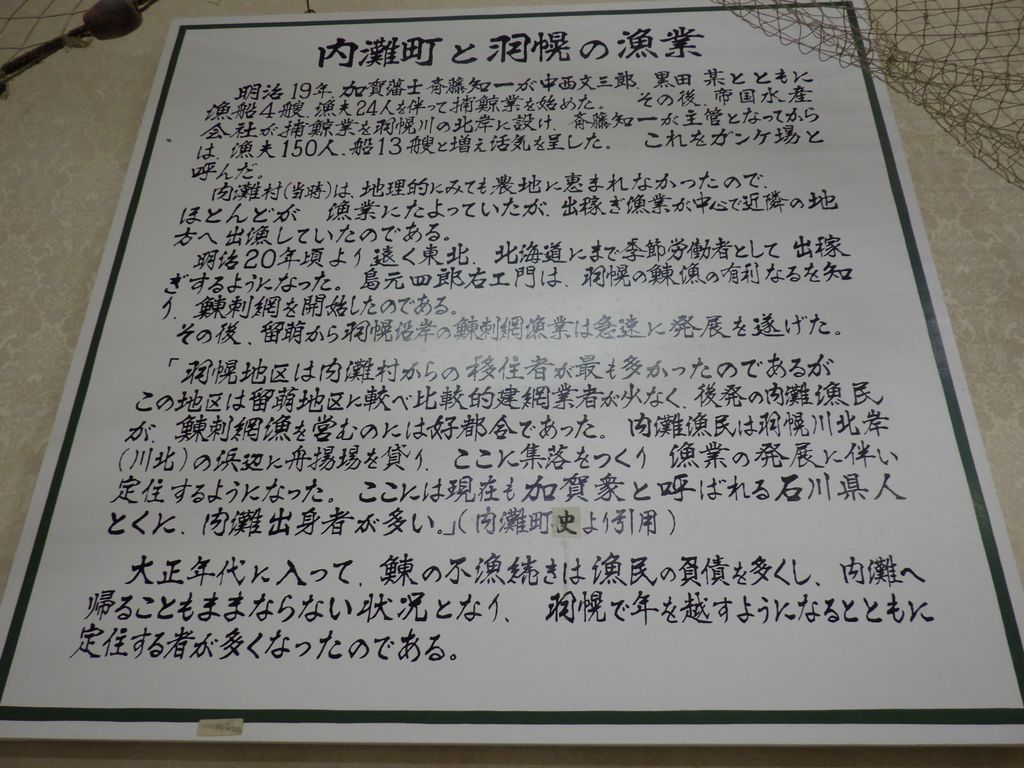 内灘町と羽幌の漁業
明治19年、加賀藩士斉藤知一が中西文三郎、黒田某とともに
漁船4艘、漁夫24人を伴って捕鯨業を始めた。 その後、帝国水産
会社が捕鯨業を羽幌川の北岸に設け、斉藤知一が主管となってから
は、漁夫150人、船13艘と増え活気を呈した。 これをガンケ場と
呼んだ。
内灘村(当時)は、地理的にみても農地に恵まれなかったので、
ほとんどが 漁業にたよっていたが、出稼ぎ漁業が中心で近隣の地
方へ出漁していたのである。
明治20年頃より遠く東北、北海道にまで季節労働者として 出稼
ぎするようになった。 島元四郎右エ門は、羽幌の鰊漁の有利なるを知
り、鰊刺網を開始したのである。
その後、留萌から羽幌沿岸の鰊刺網漁業は急速に発展を遂げた。
「羽幌地区は内灘村からの移住者が最も多かったのであるが
この地区は留萌地区に較べ比較的建網業者が少なく、後発の内灘漁民
が、鰊刺網漁を営むのには好都合であった。 内灘漁民は羽幌川北岸
(川北)の浜辺に舟揚場を貸り、ここに集落をつくり 漁業の発展に伴い
定住するようになった。 ここには現在も加賀衆と呼ばれる石川県人
とくに、内灘出身者が多い。」(内灘町史より引用)
大正年代に入って、鰊の不漁続きは漁民の負債を多くし、内灘へ
帰ることもままならない状況となり、 羽幌で年を越すようになるとともに
定住する者が多くなったのである。